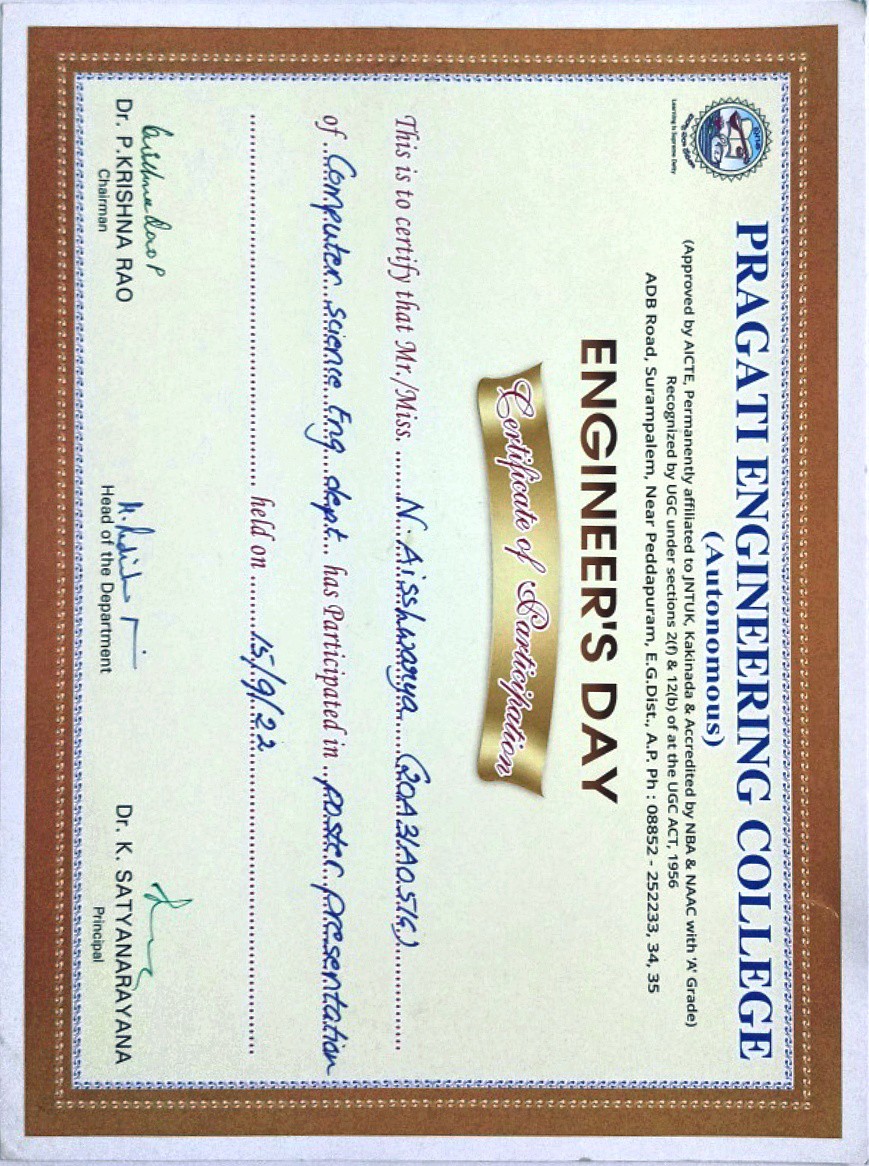 PRAGATI ENGINEERING COLLEGE
(Autonomous)
(Approved by AICTE, Permanently affiliated to JNTUK, Kakinada & Accredited by NBA & NAAC with 'A' Grade)
Recognized by UGC under sections 2(f) & 12(b) of at the UGC ACT, 1956
ADB Road, Surampalem, Near Peddapuram, E.G.Dist., A.P. Ph : 08852 - 252233, 34, 35
Learning Is Supreme Deity
ENGINEER'S DAY
Certificate of Participation
This is to certify that Mr./Miss. N. Aisshwarya
of Computer science Eng dept has Participated in poster presentation
held on 15/9/22
Krishna Rao P
Dr. P.KRISHNA RAO
Chairman
Head of the Department
Dr. K. SATYANARAYANA
Principal